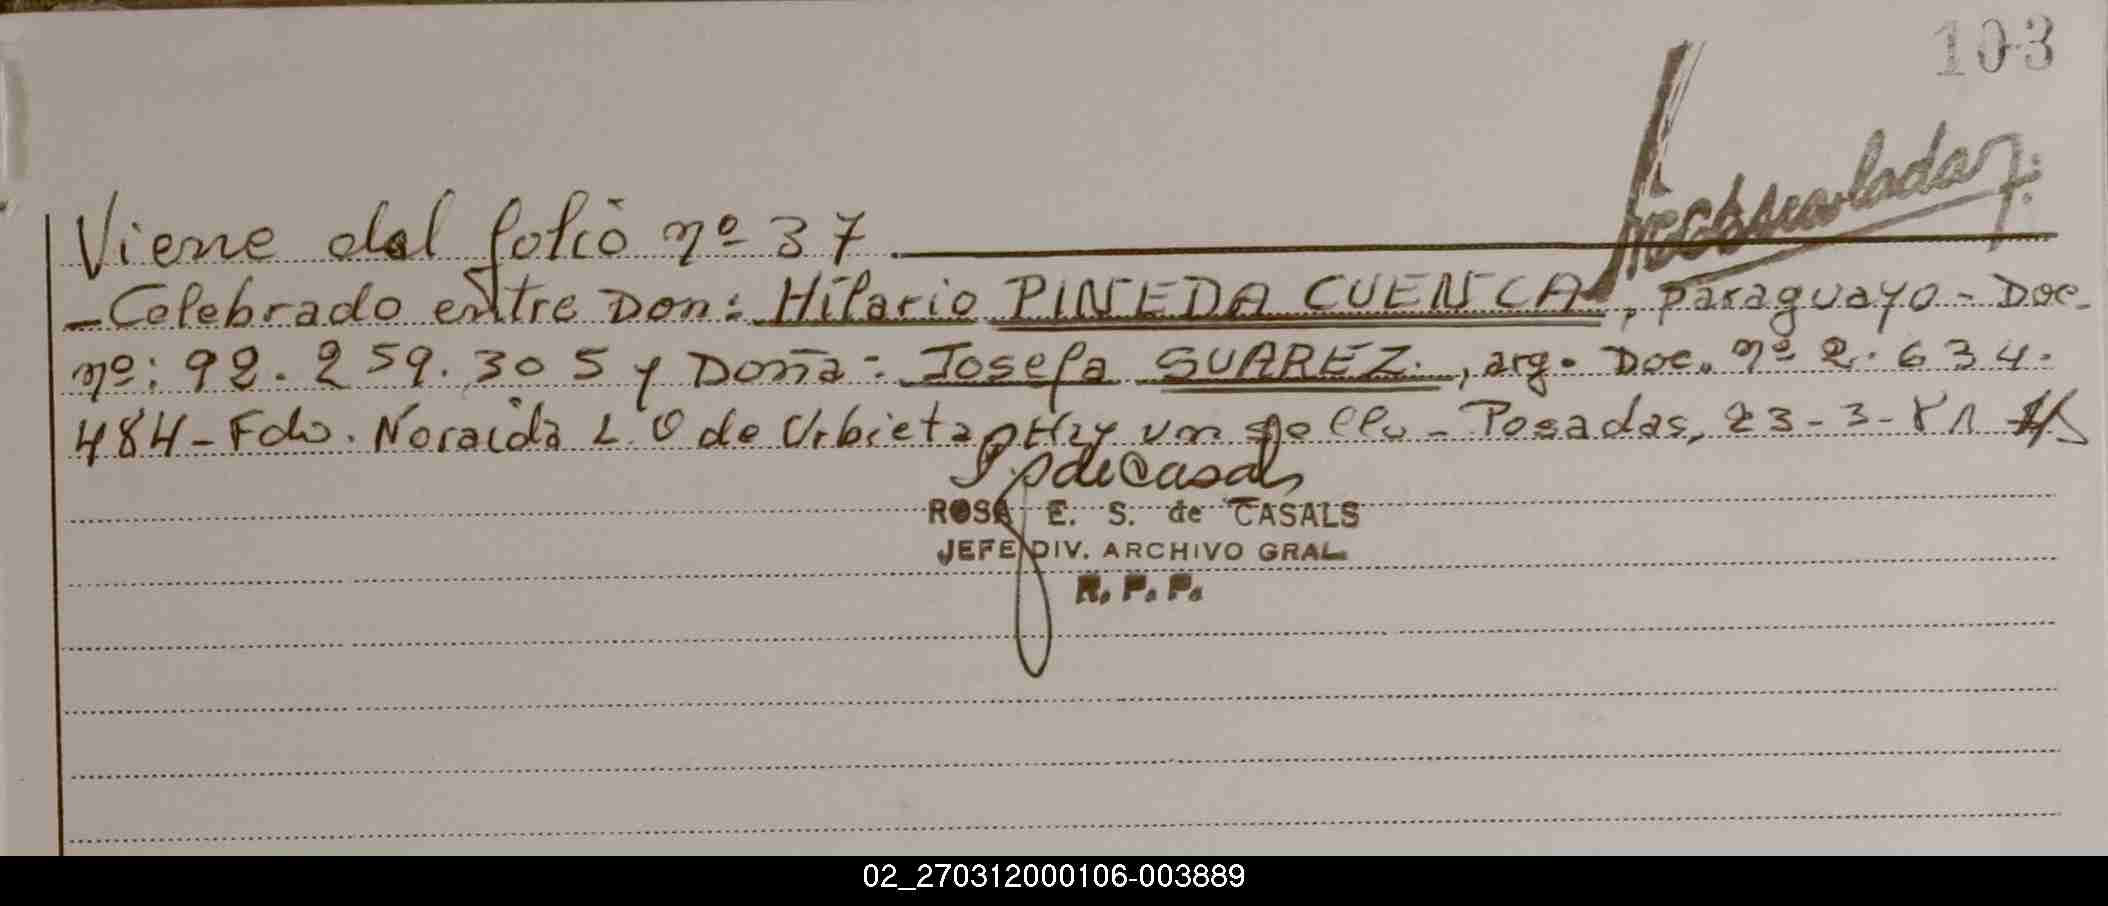 103
Viene del folio nº 37
-Celebrado entre Don: Hilario PINEDA CUENCA, paraguayo - Doc.
nº: 92.259.305 y Doña: Josefa SUAREZ., arg. Doc. nº 2.634.
484 - Fdo. Noraida L. O de Urbieta, Hay un sello - Posadas, 23-3-81
ROSA E. S. de CASALS
JEFE DIV. ARCHIVO GRAL
R. P. P.
02_270312000106-003889